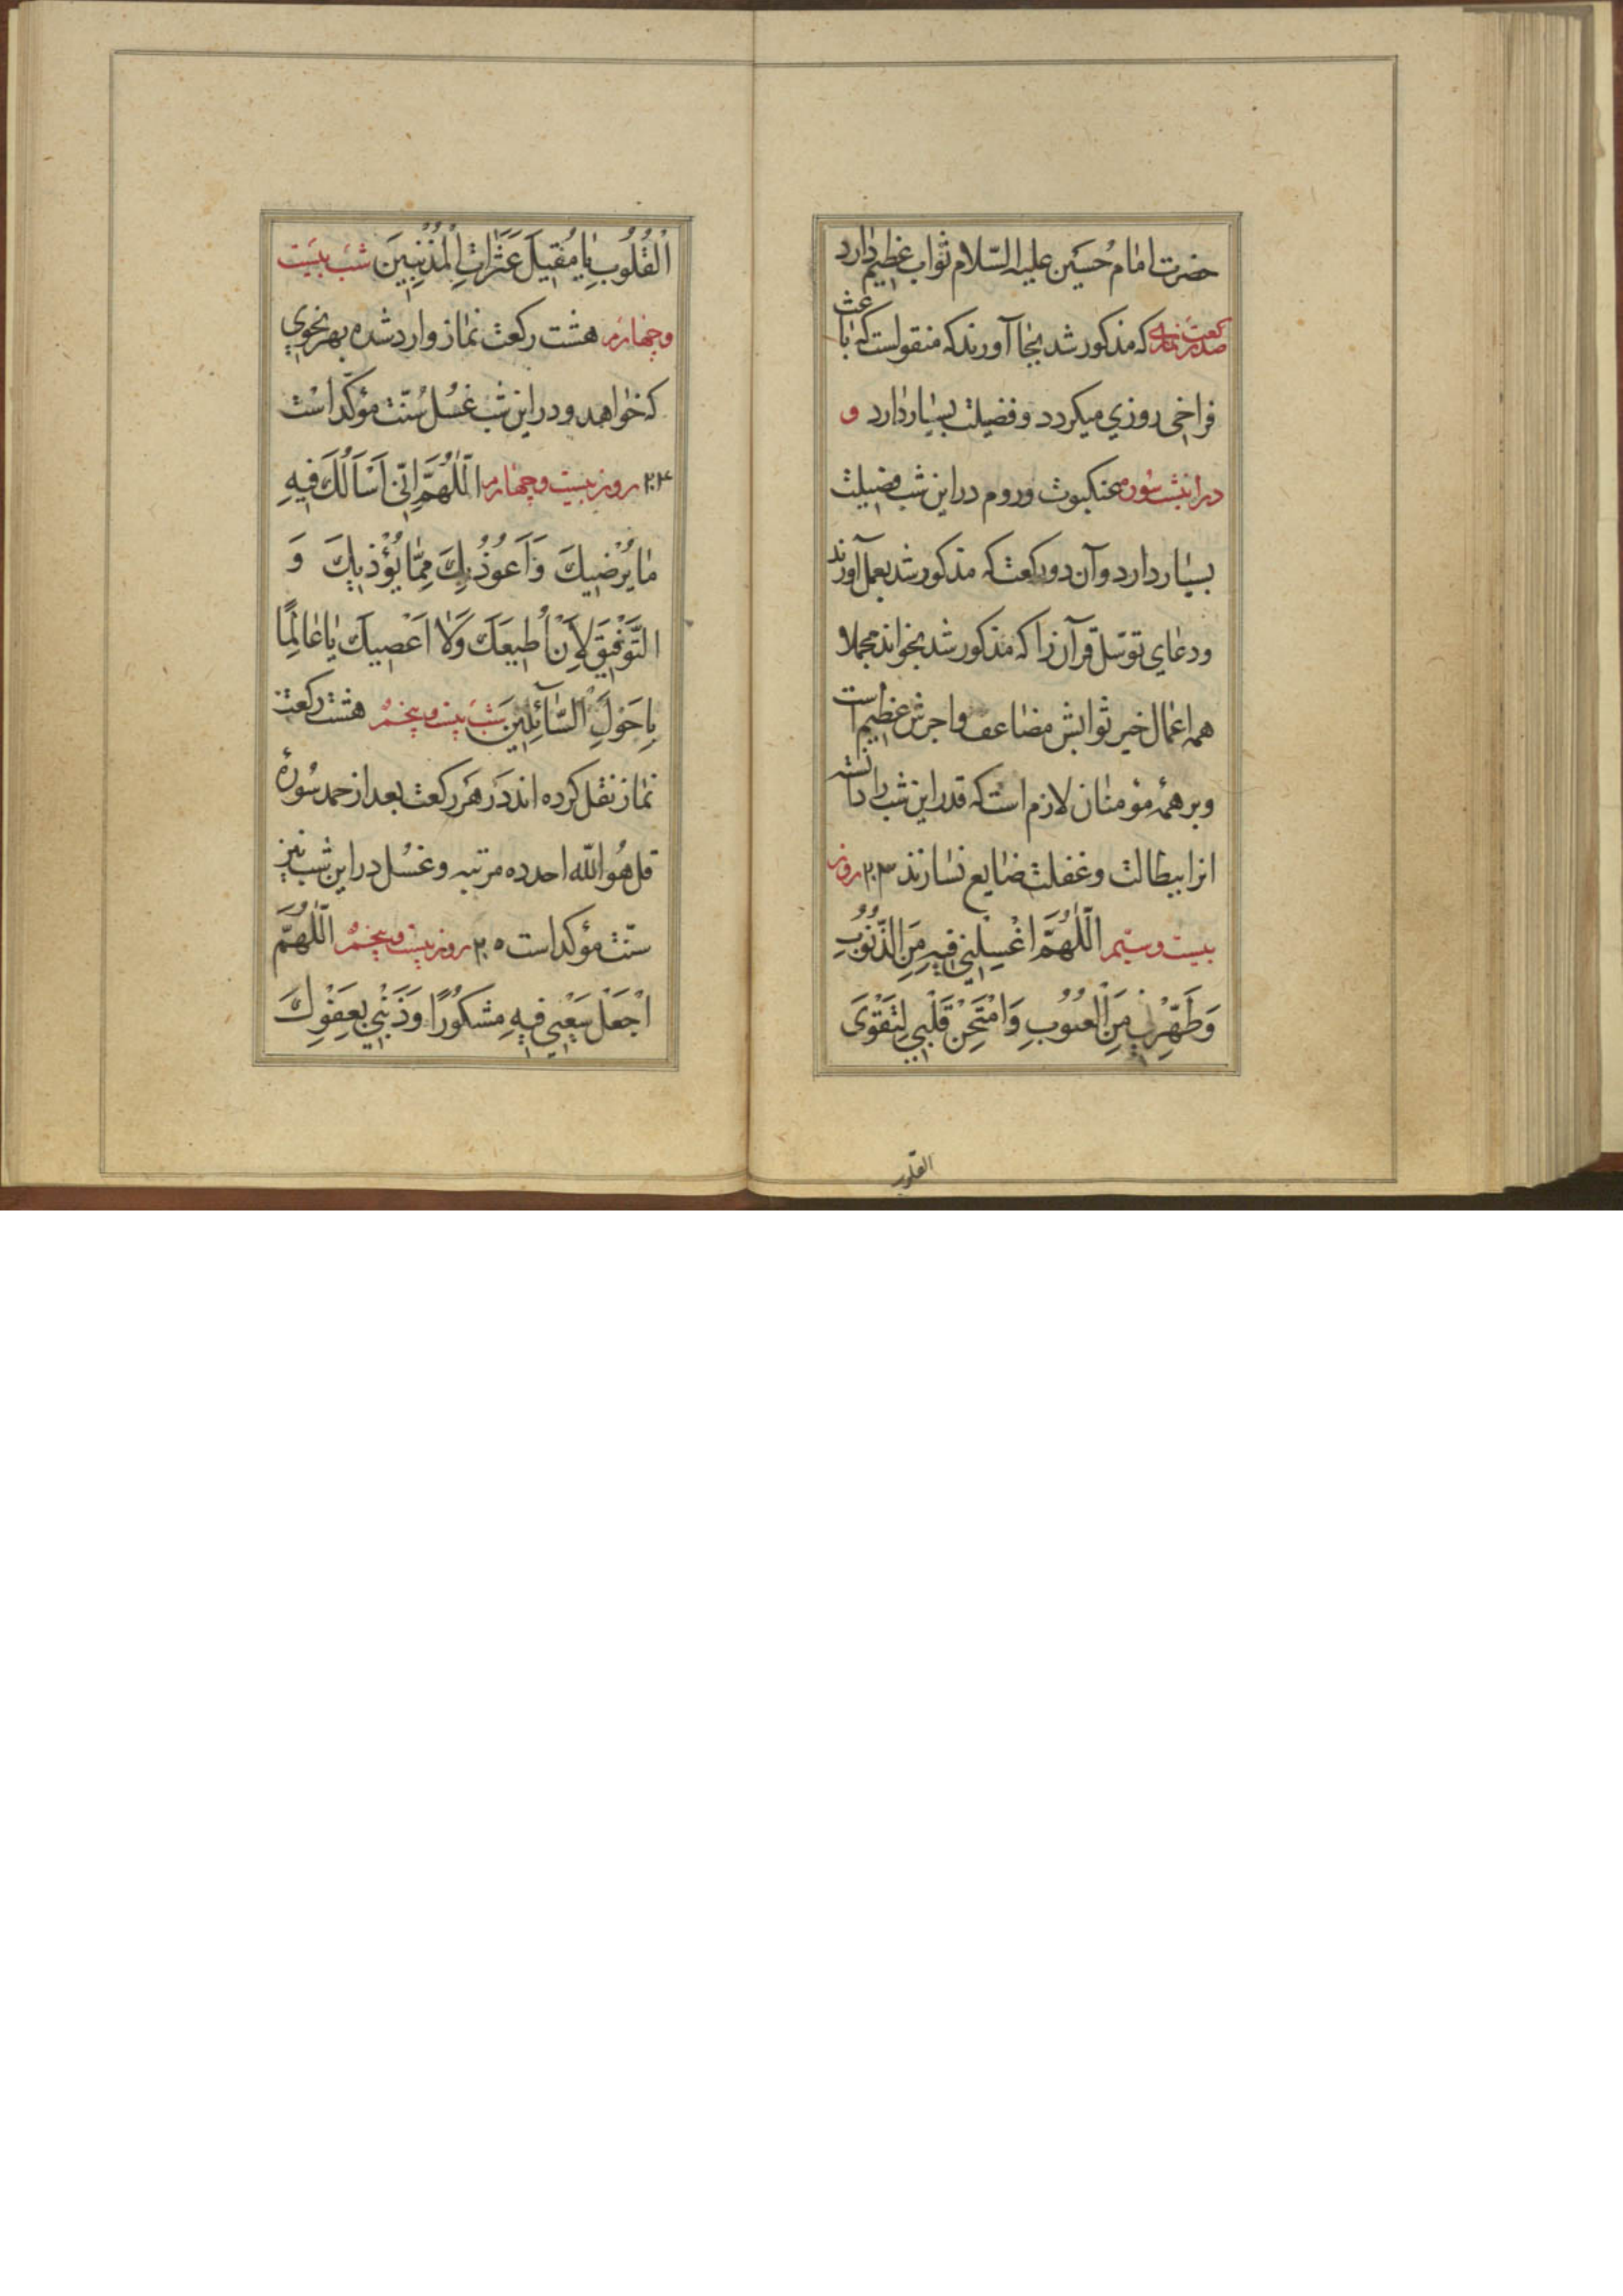 حضرت امام حُسَین علیه السّلام ثواب عظیم دارد
صد رکعت نمازی که مذکور شد بجا آورند که منقولست که باعث
فراخی روزی میکردد و فضیلت بسیار دارد و
در اینشب سُوره عنکبوت و روم در این شب فضیلت
بسیار دارد و آن دو رکعت که مذکور شد بعمل آورند
و دعای توسّل قرآن را که مذکور شد بخواند مجملا
همه اعمال خیر ثوابش مضاعف و اجرش عظیم است
و بر همهٔ مؤمنان لازم است که قدر این شب را دانسته
انرا ببطالت و غفلت ضایع نسازند ۲۰۳ روز
بیست و سیّم اَللّٰهُمَّ اغْسِلْنِي فِيهِ مِنَ الذُّنُوبِ
وَطَهِّرْنِي مِنَ الْعُيُوبِ وَامْتَحِنْ قَلْبِي لِتَقْوَى
القلوب
الْقُلُوبِ يَا مُقِيلَ عَثَرَاتِ الْمُذْنِبِينَ شب بیست
و چهارم هشت رکعت نماز وارد شده بهر نحوی
که خواهد و در این شب غسل سُنّت مؤکّد است
۲۰۴ روز بیست و چهارم اَللّٰهُمَّ اِنِّي اَسْاَلُكَ فِيهِ
مَا يُرْضِيكَ وَاَعُوذُ بِكَ مِمَّا يُؤْذِيكَ وَ
التَّوْفِيقَ لِاَنْ اُطِيعَكَ وَلَا اَعْصِيكَ يَا عَالِمًا
بِاَحْوَلِ السَّائِلِينَ شب بیست و پنجم هشت رکعت
نماز نقل کرده اند در هر رکعت بعد از حمد سُورهٔ
قل هُو اللّٰه احد ده مرتبه و غسل در این شب نیز
سنّت مؤکد است ۲۰۵ روز بیست و پنجم اَللّٰهُمَّ
اجْعَلْ سَعْيِي فِيهِ مَشْكُورًا وَذَنْبِي بِعَفْوِكَ